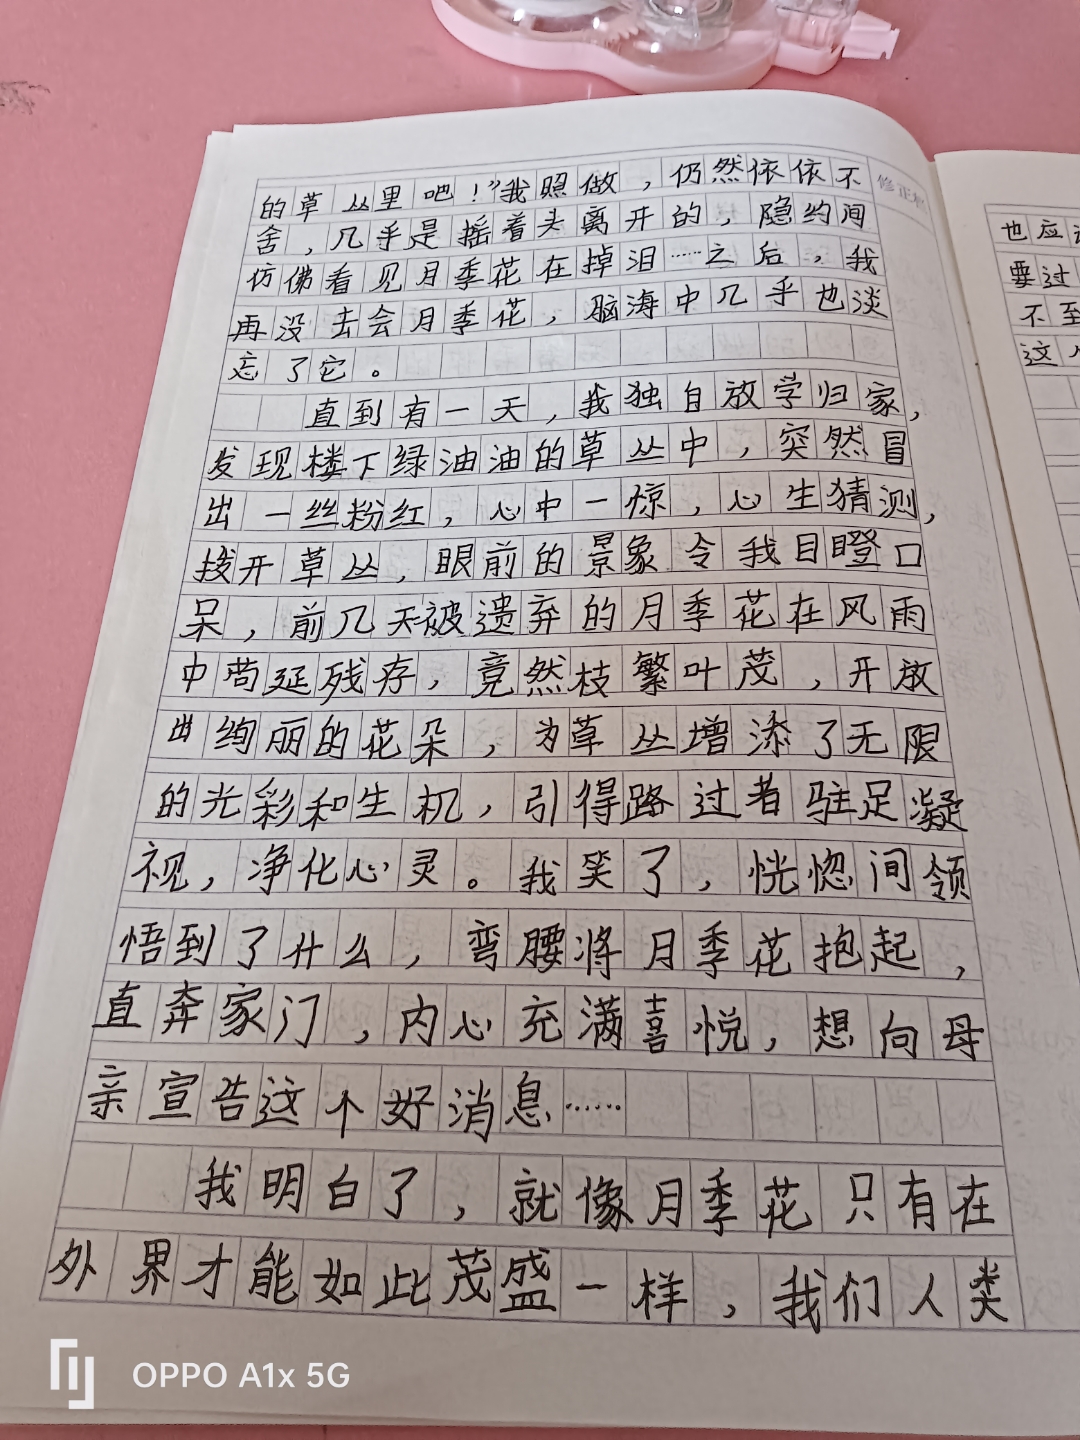 的草丛里吧！”我照做，仍然依依不
舍，几乎是摇着头离开的，隐约间
仿佛看见月季花在掉泪……之后，我
再没去会月季花，脑海中几乎也淡
忘了它。
直到有一天，我独自放学归家，
发现楼下绿油油的草丛中，突然冒
出一丝粉红，心中一惊，心生猜测，
拨开草丛，眼前的景象令我目瞪口
呆，前几天被遗弃的月季花在风雨
中苟延残存，竟然枝繁叶茂，开放
出绚丽的花朵，为草丛增添了无限
的光彩和生机，引得路过者驻足凝
视，净化心灵。我笑了，恍惚间领
悟到了什么，弯腰将月季花抱起，
直奔家门，内心充满喜悦，想向母
亲宣告这个好消息……
我明白了，就像月季花只有在
外界才能如此茂盛一样，我们人类
修正栏
也应
要过
不至
这
OPPO A1x 5G